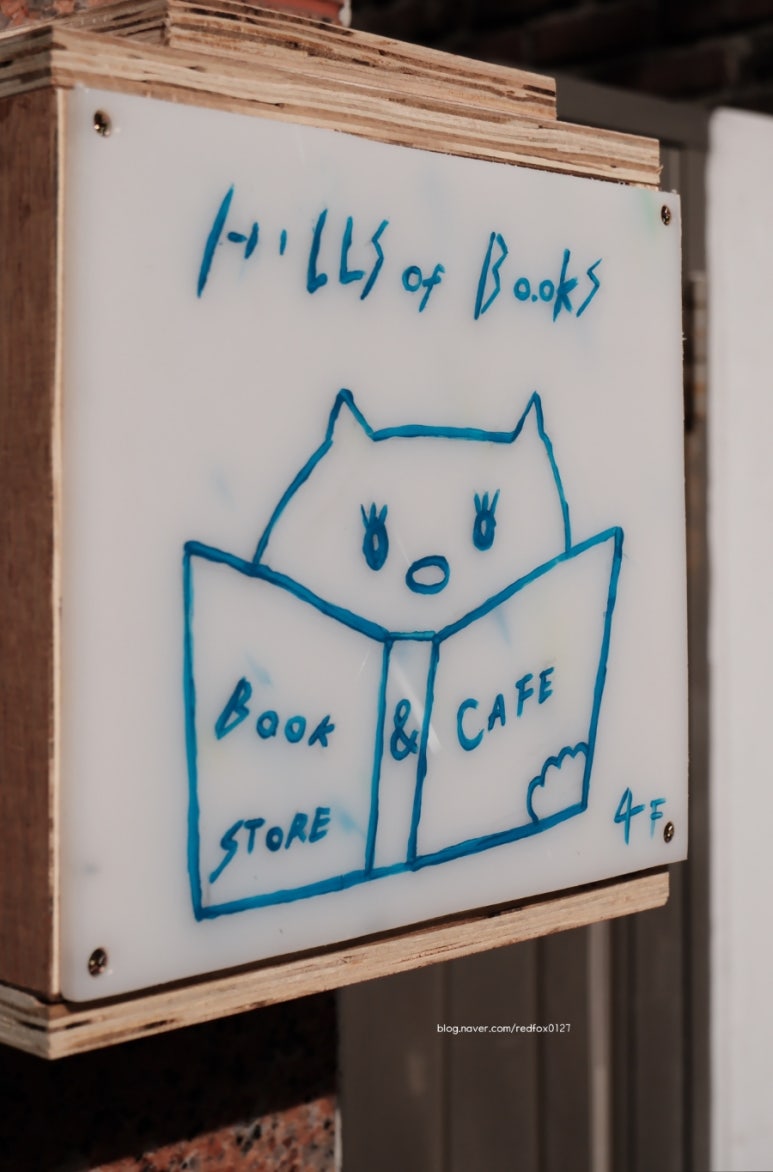 HiLLS of Books
Book & CAFE
STORE
4F
blog.naver.com/redfox0127